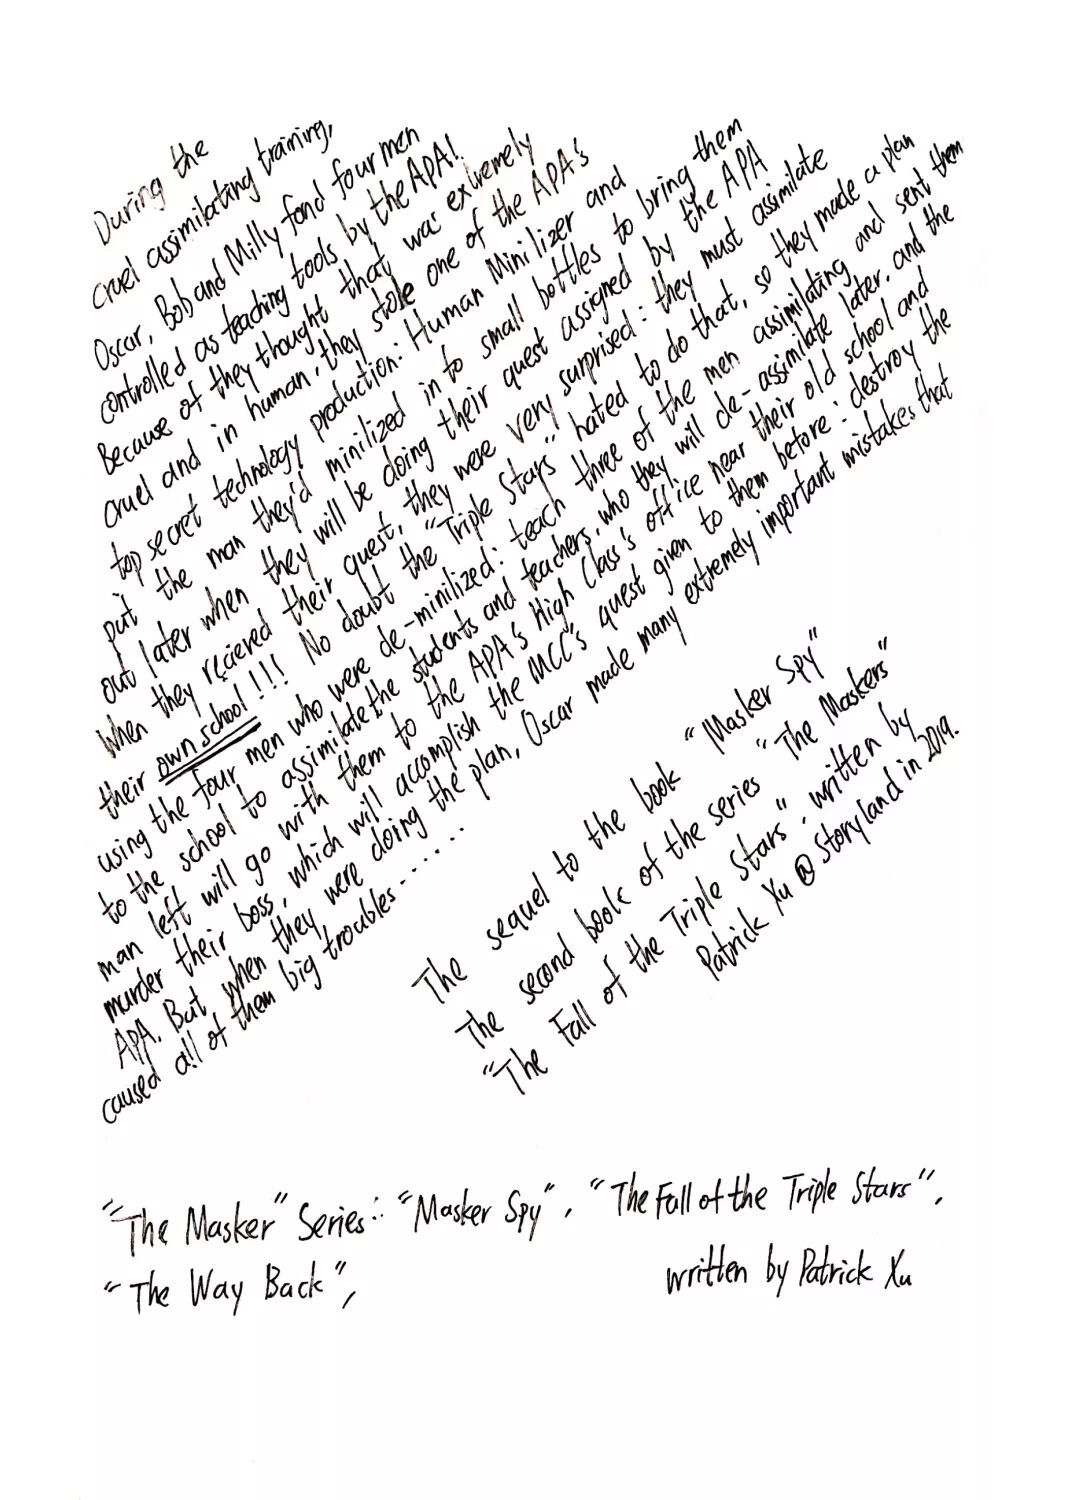 During the
cruel assimilating training,
Oscar, Bob and Milly fond four men
controlled as teaching tools by the APA!
Because of they thought that was extremely
cruel and in human, they stole one of the APA's
top secret technology production: Human Minilizer and
put the man they'd minilized in to small bottles to bring them
out later when they will be doing their quest assigned by the APA
When they recieved their quest, they were very surprised: they must assimilate
their own school!!! No doubt the "Triple Stars" hated to do that, so they made a plan
using the four men who were de-minilized: teach three of the men assimilating and sent them
to the school to assimilate the students and teachers, who they will de-assimilate later. and the
man left will go with them to the APA's High Class's office near their old school and
murder their boss, which will accomplish the MCC's quest given to them before: destroy the
APA. But when they were doing the plan, Oscar made many extremely important mistakes that
caused all of them big troubles......
The sequel to the book "Masker Spy"
The second book of the series "The Maskers"
"The Fall of the Triple Stars", written by
Patrick Xu @ Storyland in 2019.
"The Masker" Series: "Masker Spy", "The Fall of the Triple Stars",
"The Way Back",
written by Patrick Xu